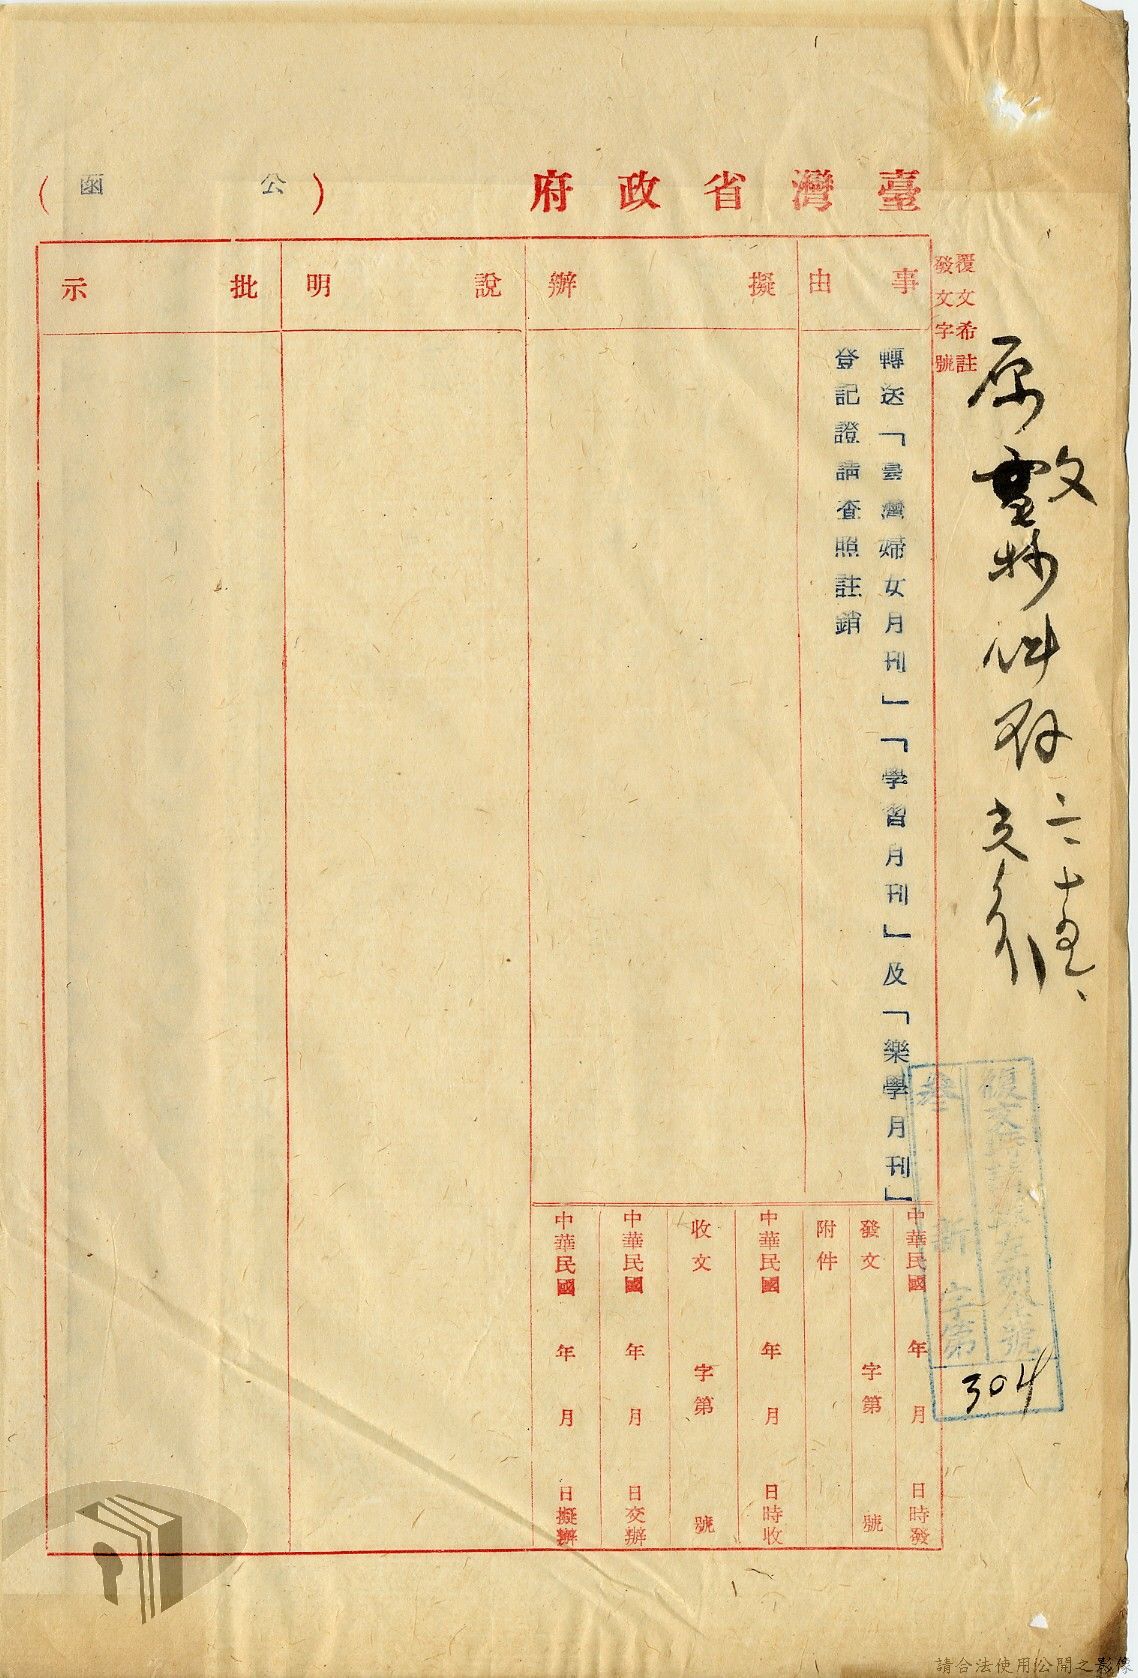 臺灣省政府(公函)
覆文希註
發文字號
事由
轉送「臺灣婦女月刊」「學習月刊」及「樂學月刊」
登記證請查照註銷
擬辦
說明
批示
中華民國 年 月 日 時發
發文 字第 號
附件
中華民國 年 月 日 時收
收文 字第 號
中華民國 年 月 日交辦
中華民國 年 月 日擬辦
字第
304
請合法使用公開之影像